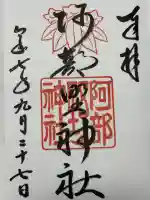 奉拝
阿部野神社
令和七年九月二十七日
阿部
野神社